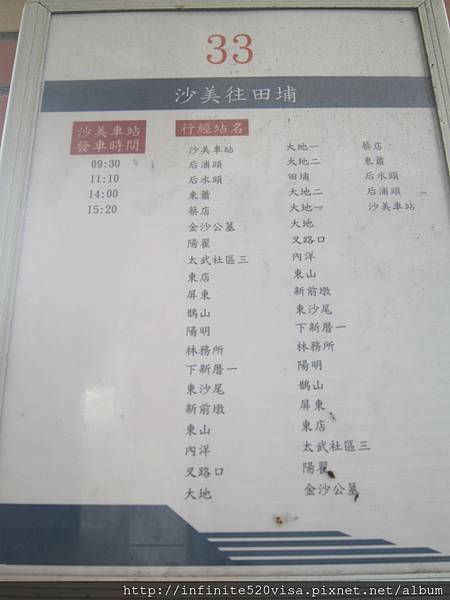 33
沙美往田埔
沙美車站
發車時間
09:30
11:10
14:00
15:20
行經站名
沙美車站
后浦頭
后水頭
東蕭
蔡店
金沙公墓
陽翟
太武社區三
東店
屏東
鵲山
陽明
林務所
下新厝一
東沙尾
新前墩
東山
內洋
叉路口
大地
大地一
大地二
田埔
大地二
大地一
大地
叉路口
內洋
東山
新前墩
東沙尾
下新厝一
林務所
陽明
鵲山
屏東
東店
太武社區三
陽翟
金沙公墓
蔡店
東蕭
后水頭
后浦頭
沙美車站
http://infinite520visa.pixnet.net/album